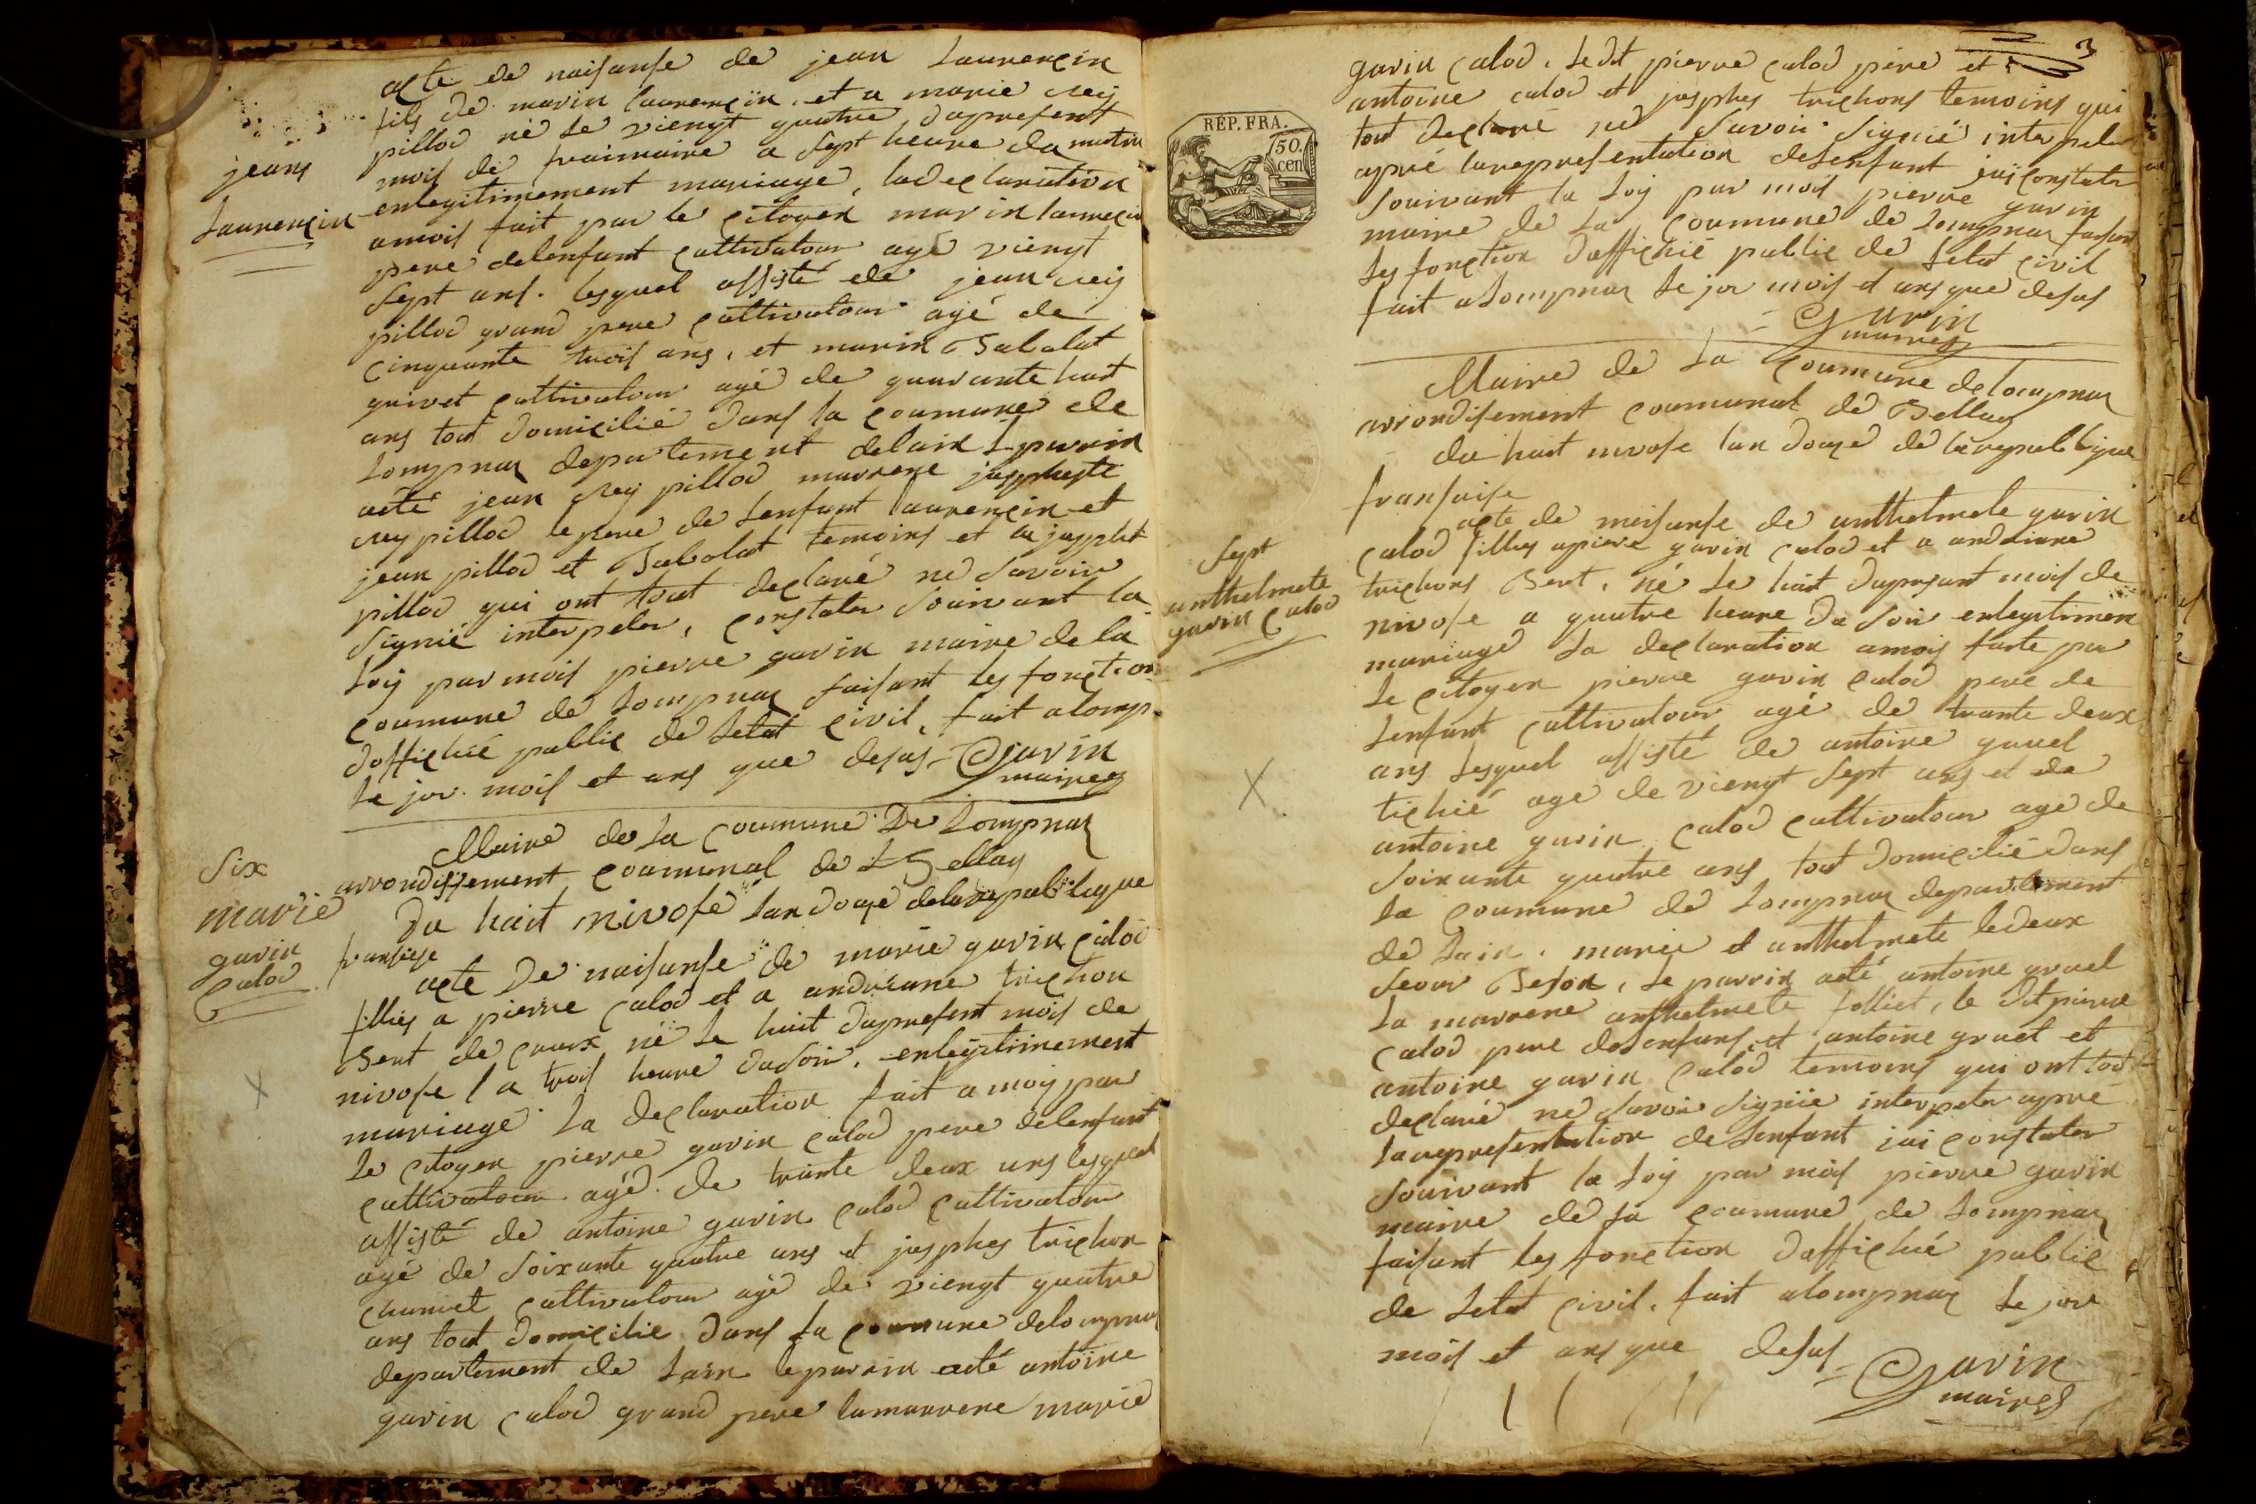 acte de naisanse de jean Laurençin
fils de marin laurençin et a marie rey
pillod né Le viengt quatre dupresent
mois de fraimaire a sept heure du matin
enlegitimement mariage, ladeclaration
amois fait par le citoyen marin laurençin
pere delenfant cultivatour agé viengt
sept ans. lesquel assisté de jean rey
pillod grand pere cultivatour agé de
cinquante trois ans, et marin Babolat
cultivatour agé de quarante huit
ans tout domicilié dans la coumune de
Lompnaz departement delain Lparrin
acté jean rey pillod marrene
rey pillod lepere de Lenfant laurençin et
jean pillod et Babolat temoins et
pillod qui ont tout declaré ne savoir
signié interpeler, constater souivant la
Loij par mois pierre gavin maire de la
coumune de Lompnaz faisant les fonction
doffichié public de Letat civil, fait alomp
Le jor mois et ans que desus = Gavin
maires
jeans
Laurençin
Maire de La coumune De Lompnaz
arrondissement coumunal de Bellay
Du huit nivose Lan douze delarepublique
fransiese
acte De naisanse de marie gavin calod
filles a pierre calod et a andreane trichon
Bent de né Le huit dupresent mois de
nivose l a trois heure dusoir, enlegitimement
mariage La declaration fait a moij par
Le citoyen pierre gavin calod pere delenfant
cultivatour agé de trante deux ans lesquel
assisté de antoine gavin calod cultivatour
agé de soixante quatre ans et josephes trichon
cultivatour agé de viengt quatre
ans tout domicilié dans La coumune delompnaz
departement de Lain leparrin acté antoine
gavin calod grand pere lamarrene marie
Six
marie
gavin
calod
3
gavin calod. Ledit pierre calod pere et
antoine calod et josphes trichons temoins qui
tout declaré ne savoir signié interpeler
aprié larepresentation deLenfant jai constater
souivant la Loij par mois pierre gavin
maire de La coumune de Lompnaz faisant
Les fonction doffichié public de Letat civil
fait aLompnaz Le jor mois et ans que desus
= Gavin
maires
REP. FRA.
50.
cen
Maire de La coumune de Lompnaz
arrondisement coumunal de Bellay
du huit nivose lan douze de larepublique
fransaise
acte de naisanse de anthelmete gavin
calod filles apiere gavin calod et a andreane
trichons Bent, né Le huit dupresant mois de
nivose a quatre heure du soir enlegitimem
mariage La declaration amois faite par
Le citoyen pierre gavin calod pere de
Lenfant cultivatour agé de trante deux
ans Lesquel assisté de antoine gruel
tichié age de viengt sept ans et de
antoine gavin calod cultivatour age de
soixante quatre ans tout domicilié dans
La coumune de Lompnaz departement
de Lain. marie et anthelmete ledeux
seour Beson, Le parrin acté antoine gruel
La marrene anthelmete folliet, le dit pierre
calod pere deLenfans et antoine gruet et
antoine gavin calod temoins qui ont tout
declaré ne savoir signiie interpeler aprié
Larepresentation deLenfant jai constater
souivant la Loij par mois pierre gavin
maire de La coumune de Lompnaz
faisant les fonction doffichié public
de Letat civil. fait alompnaz Le jor
mois et ans que desus = Gavin
maires
Sept
anthelmete
gavin calod